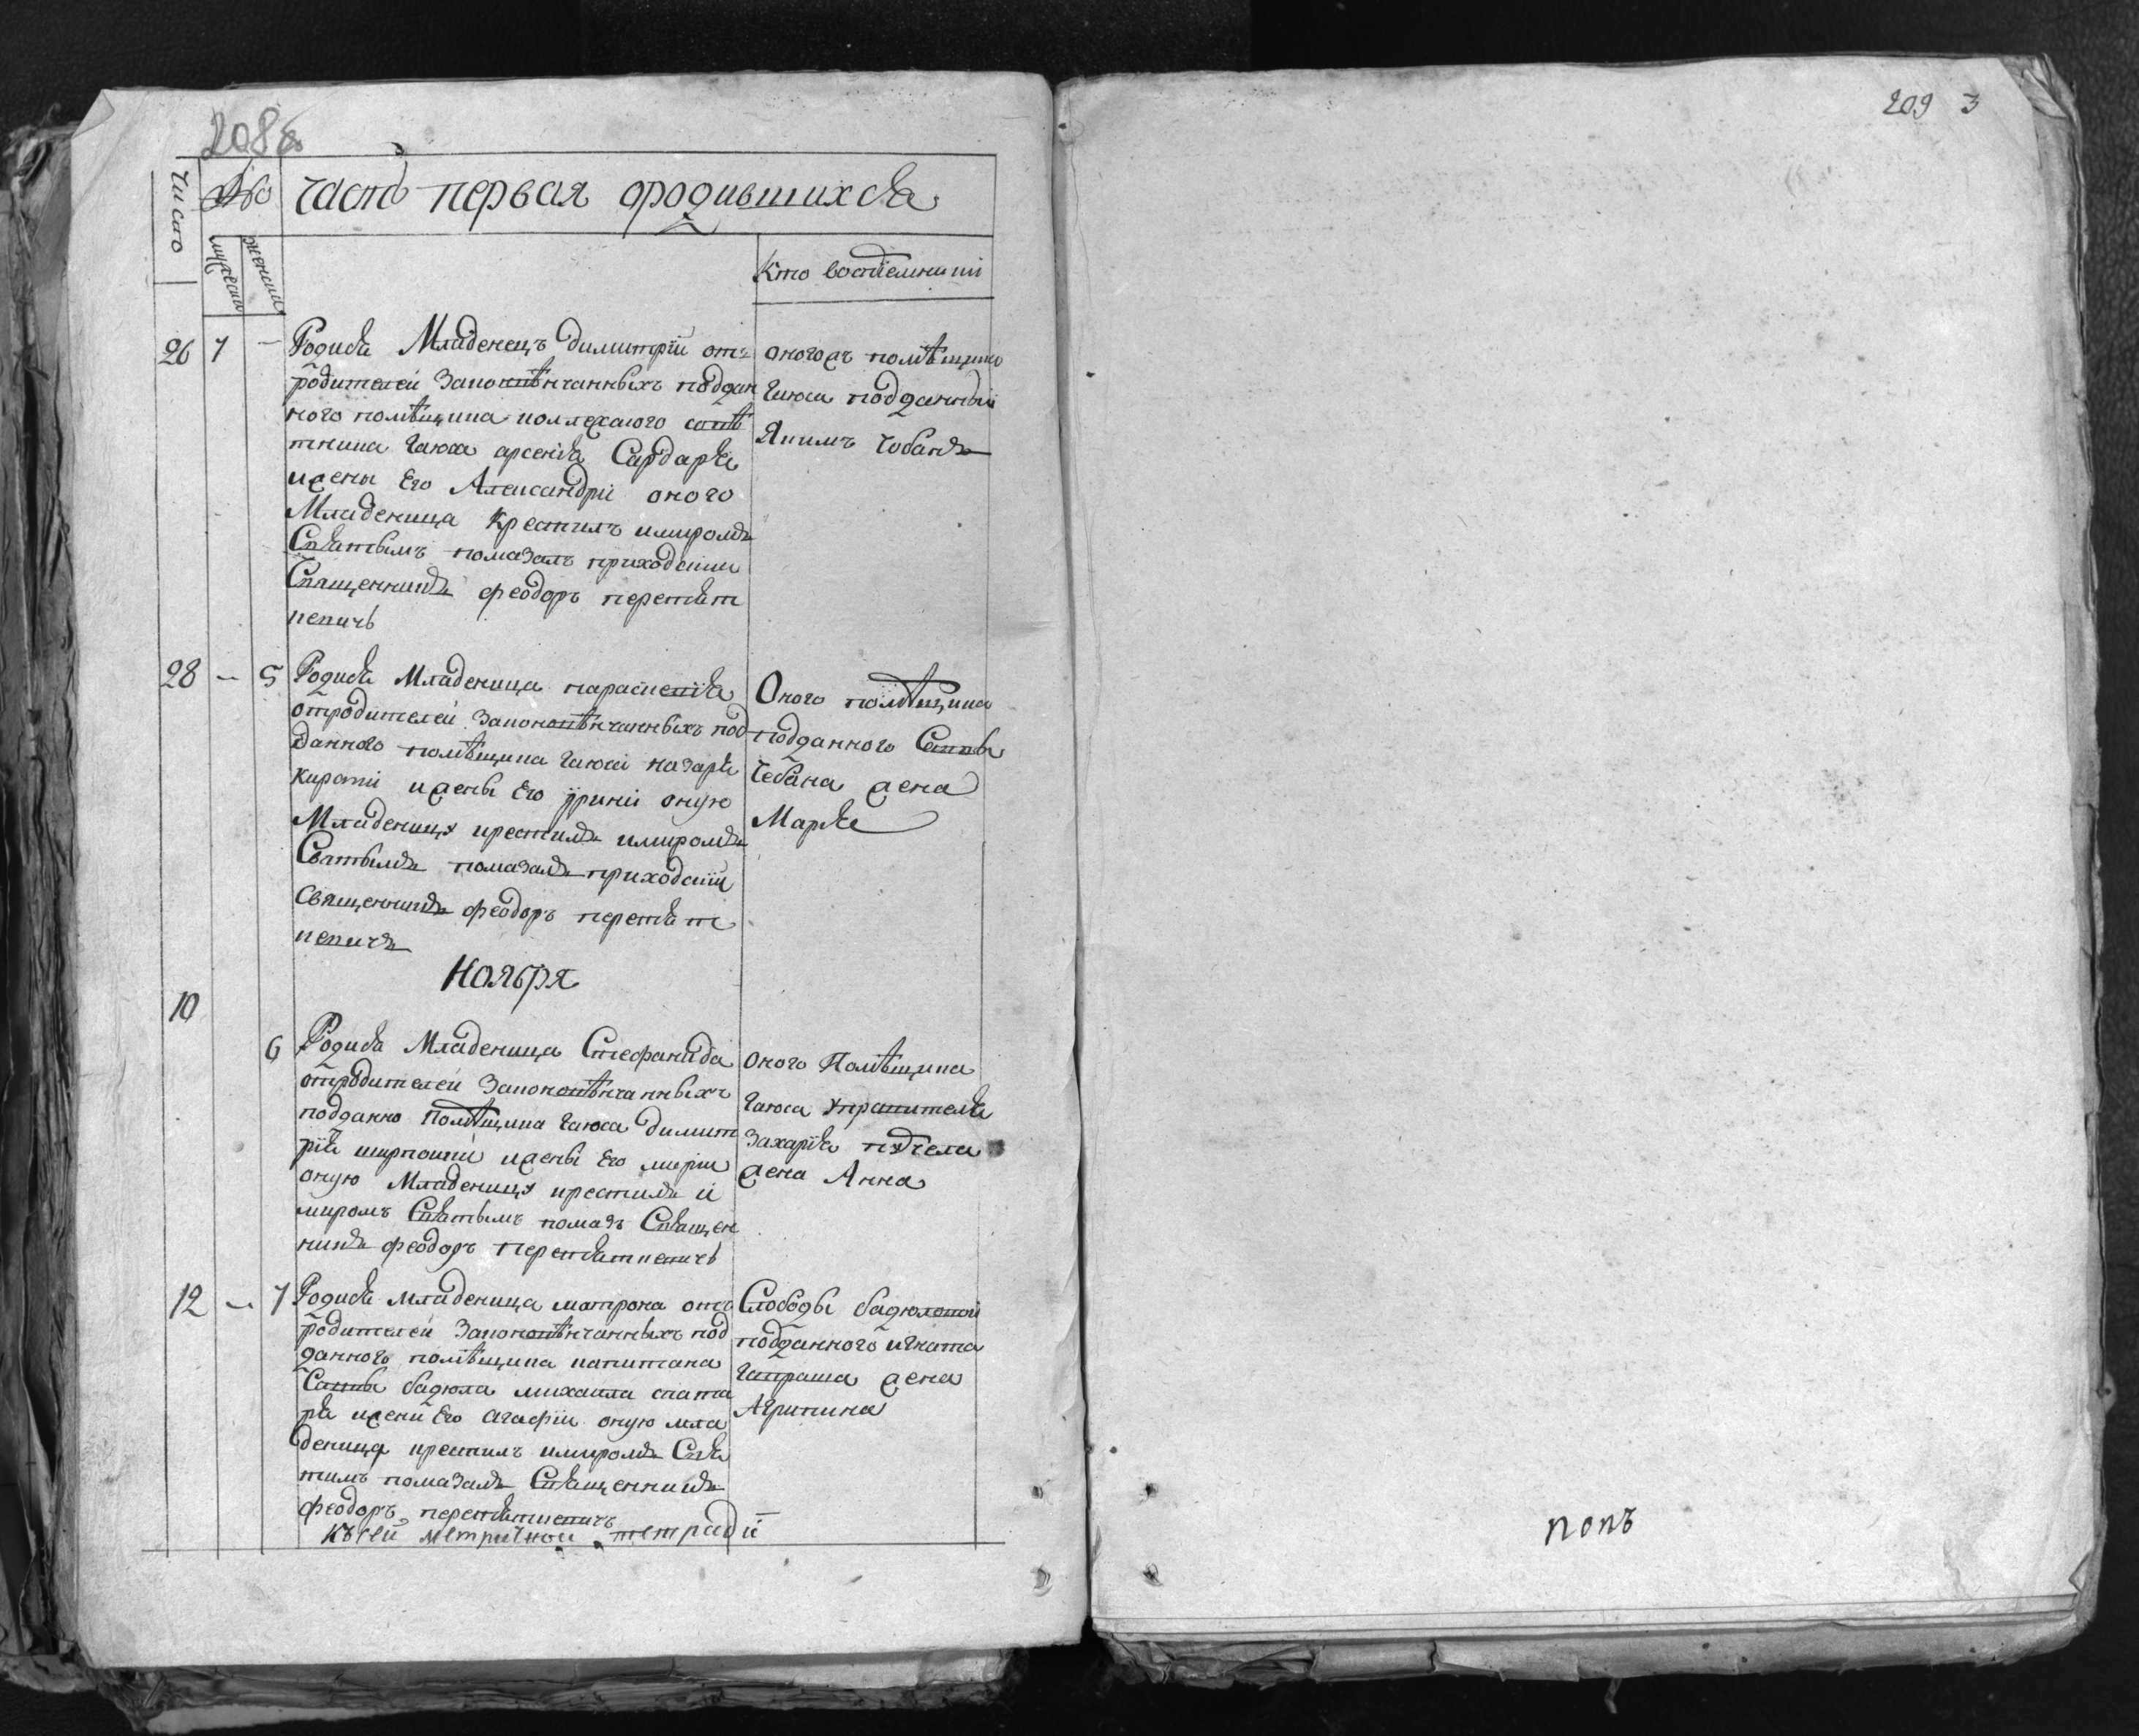 208б
Число
№
часть первая ородившихся
мужеска
женска
Кто воспрiемники
26 7 — Родися Младенецъ димитрiй отъ
родителей Законовѣнчанныхъ поддан
ного помѣщика коллежского совѣ
тника Гаюса арсенiя Сардаря
ижены Его Александри оного
Младенца Крестилъ имиромъ
Святымъ помазалъ приходскiй
Священникъ феодоръ перетят
кевичь
оногожъ помѣщика
Гаюса подданный
Якимъ Чобанъ
28 — 5 Родися Младеница параскевiя
отродителей Законовѣнчанныхъ под
данного помѣщика гаюса назаря
Кирстi ижены Его iриниi оную
Младеницу крестилъ имиромъ
Святымъ помазалъ приходскiй
Священникъ феодоръ перетят
кевичъ
Оного помѣщика
подданного Саввы
Чебана жена
Марiя
Ноября
10
6 Родися Младеница Стефанида
отродителей Законовѣнчанныхъ
подданно Помѣщика Гаюса димит
рiя ижены Его марiи
оную Младеницу крестилъ и
миромъ Святымъ помазъ Священ
никъ феодоръ перетяткевичь
оного Помѣщика
Гаюса Управителя
Захарiя
жена Анна
12 — 7 Родися младеница матрона отъ
родителей Законовѣнчанныхъ под
данного помѣщика капитана
Саввы бадюла михаила спата
ря ижени Его агафiи оную мла
деница крестилъ имиромъ Свя
тимъ помазалъ Священникъ
феодоръ перетяткевичъ
Слободы бадюловой
подданного игната
Чапраша жена
Агрипина
Къ сей метричной тетради
209 3
попъ